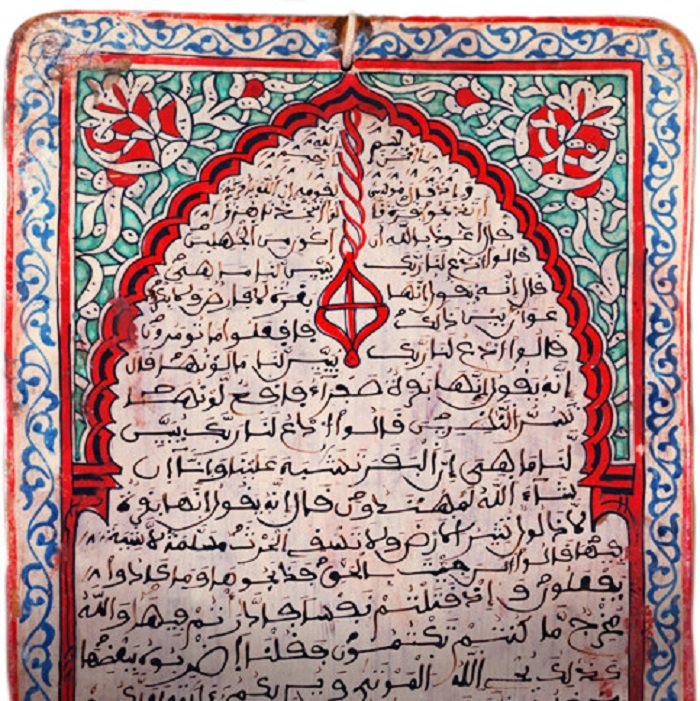 بسم الله
الرحمن الرحيم
وإذ قال موسى لقومه إن الله يأمر
أن تذبحوا بقرة قالوا أتتخذنا هزؤا
قال أعوذ بالله أن أكون من الجهلين
قالوا ادع لنا ربك يبين لنا ما هي
قال إنه يقول إنها بقرة لا فارض ولا بكر
عوان بين ذلك فافعلوا ما تومرون
قالوا ادع لنا ربك يبين لنا ما لونها قال
إنه يقول إنها بقرة صفراء فاقع لونها
تسر النظرين قالوا ادع لنا ربك يبين
لنا ما هي إن البقر تشبه علينا وإنا إن
شاء الله لمهتدون قال إنه يقول إنها بقرة
لا ذلول تثير الارض ولا تسقي الحرث مسلمة لا شية
فيها قالوا الن جئت بالحق فذبحوها وما كادوا
يفعلون وإذ قتلتم نفسا فادارتم فيها والله
مخرج ما كنتم تكتمون فقلنا اضربوه ببعضها
كذلك يحي الله الموتى ويريكم ءايته